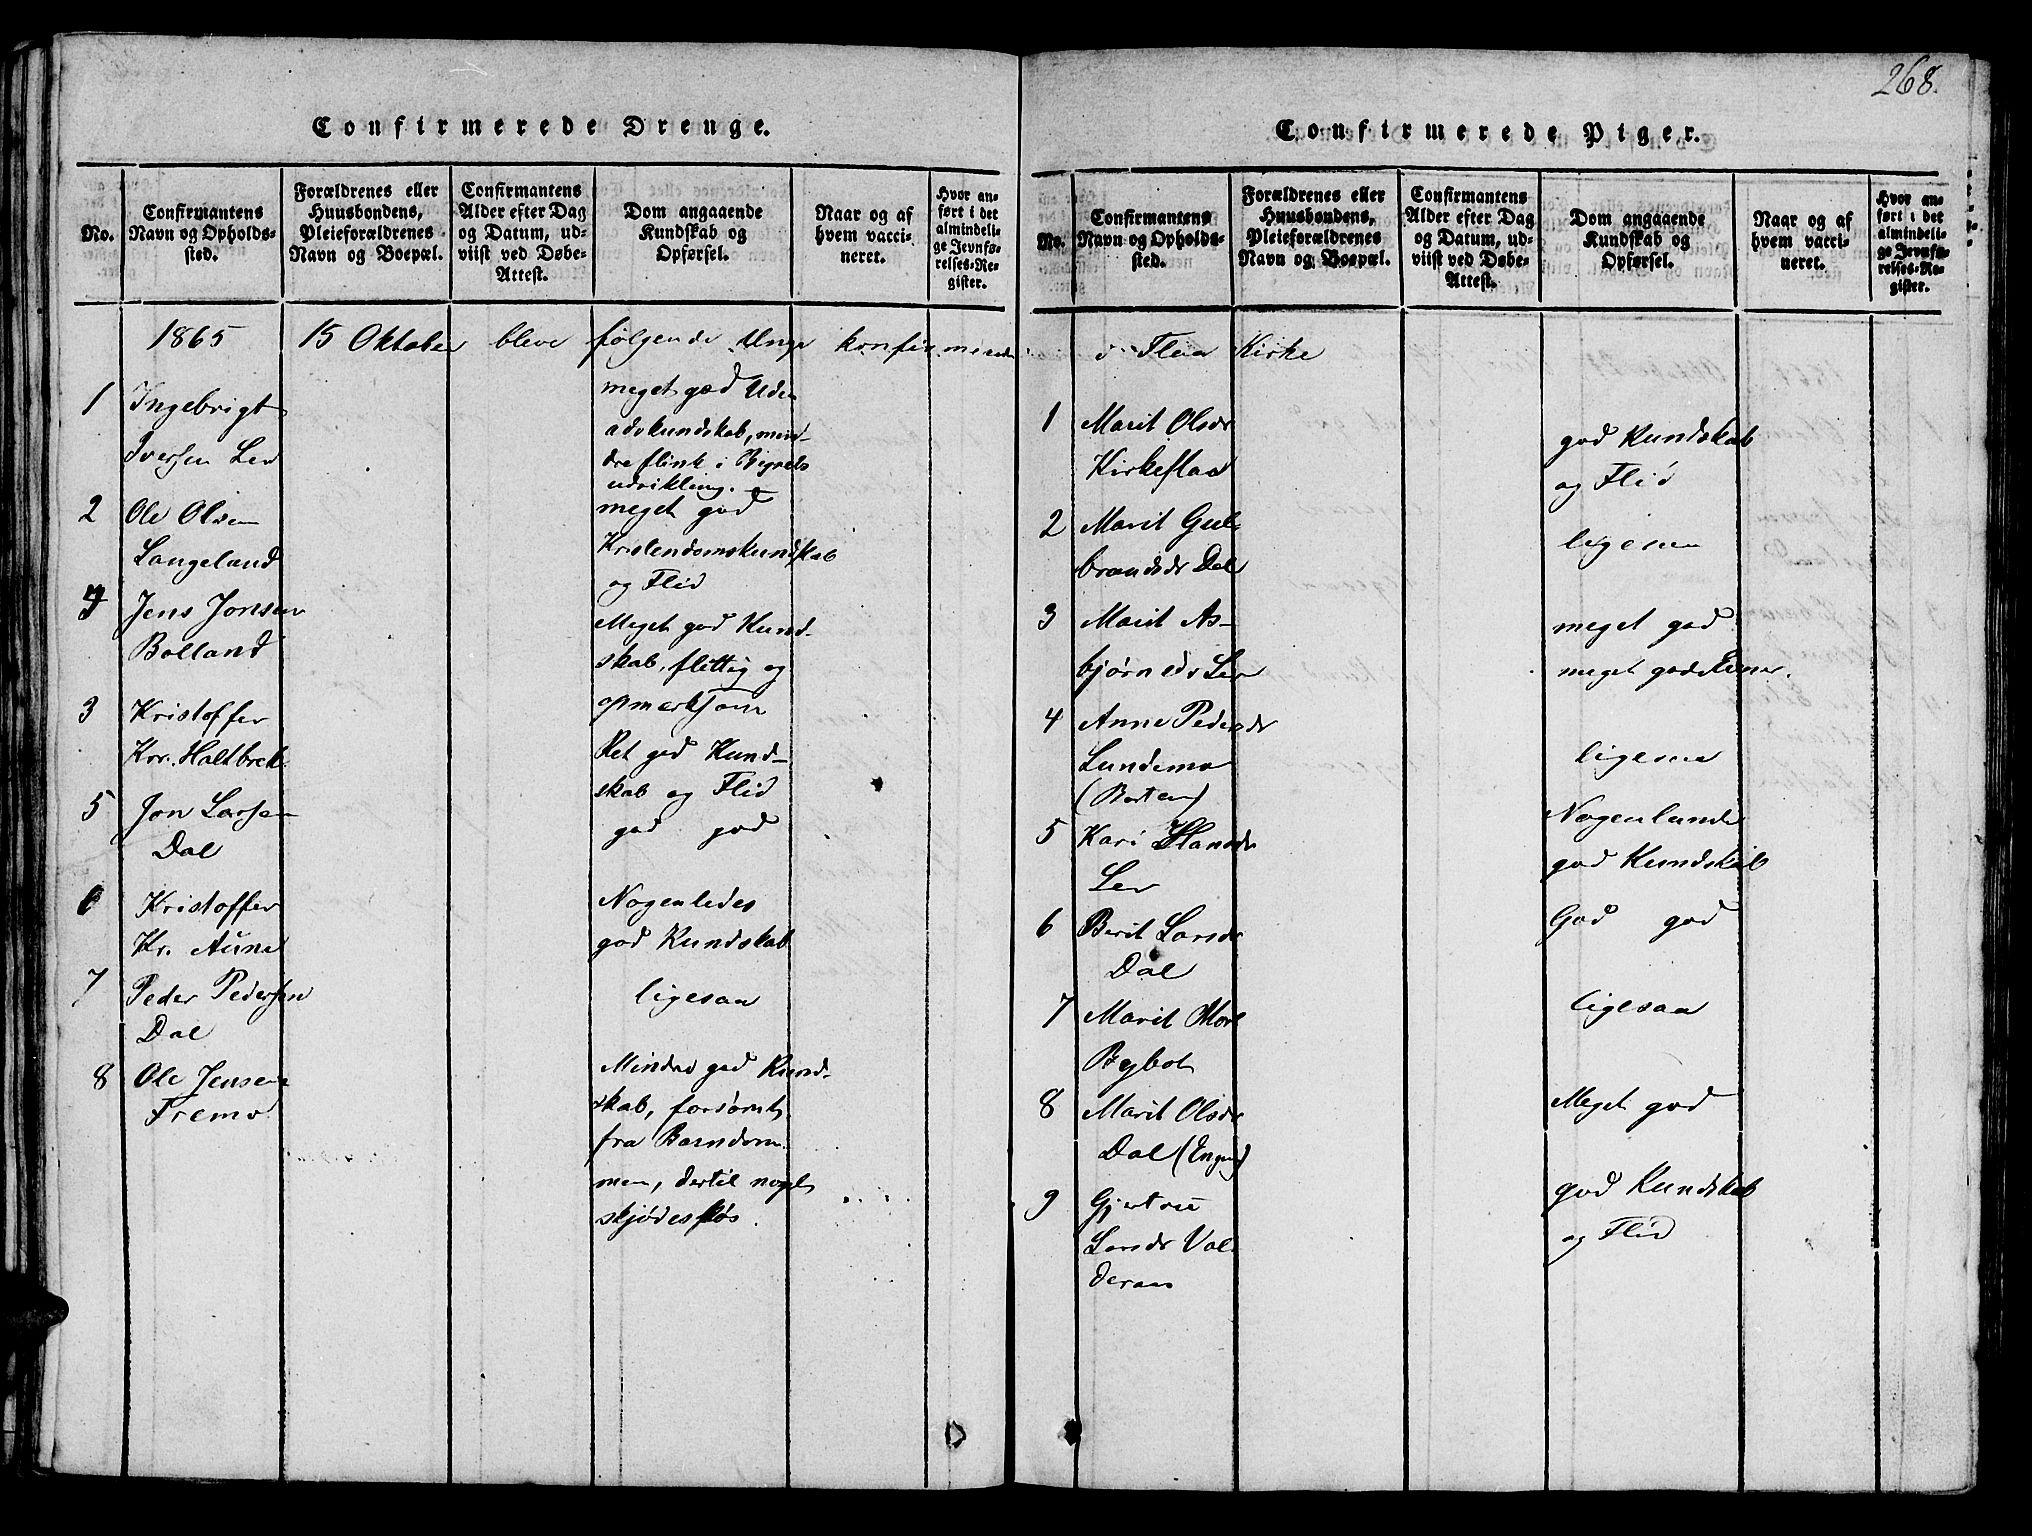 268.
Confirmerede Drenge.
No.
Confirmantens
Navn og Opholds-
sted.
Forældrenes eller
Huusbondens,
Pleieforældrenes
Navn og Boepæl.
Confirmantens
Alder efter Dag
og Datum, ud-
viist ved Døbe-
Attest.
Dom angaaende
Kundskab og
Opførsel.
Naar og af
hvem vacci-
neret.
Hvor an-
ført i det
almindeli-
ge Jevnfø-
relses-Re-
gister.
1865 15 Oktober bleve følgende Unge konfirmerede
1 Ingebrigt
Iversen Ler
meget god Uden
adskundskab, min-
dre flink i Begrebs
udvikling.
2 Ole Olsen
Langeland
meget god
Kristendomskundskab
og Flid
Jens Jonsen
Bolland
Meget god Kund-
skab, flittig og
opmerksom
3 Kristoffer
Kr. Haltbrek
Ret god Kund-
skab og Flid
5 Jon Larsen
Dal
god god
6 Kristoffer
Kr. Aune
Nogenledes
god Kundskab
7 Peder Pedersen
Dal
ligesaa
8 Ole Jensen
Fremo
Mindre god Kund-
skab, forsømt
fra Barndom
men, dertil noget
skjødesløs.
Confirmerede Piger.
No.
Confirmantens
Navn og Opholds-
sted.
Forældrenes eller
Huusbondens,
Pleieforældrenes
Navn og Boepæl.
Confirmantens
Alder efter Dag
og Datum, ud-
viist ved Døbe-
Attest.
Dom angaaende
Kundskab og
Opførsel.
Naar og af
hvem vacci-
neret.
Hvor an-
ført i det
almindeli-
ge Jevnfø-
relses-Re-
gister.
i Flaa Kirke
1 Marit Olsdr
Kirkeflaa
god Kundskab
og Flid
2 Marit Gul-
brandsdr Dal
ligesaa
3 Marit As-
bjørnsdr Ler
meget god
meget gode Evner.
4 Anne Pedersdr
Lundemo
(Borten)
ligesaa
5 Kari Hansdr
Ler
Nogenlunde
god Kundskab
6 Berit Larsdr
Dal
God god
7 Marit
Bybot
ligesaa
8 Marit Olsdr
Dal (Engen)
Meget god
9 Gjertru
Larsdr Val-
deraas
god Kundskab
og Flid